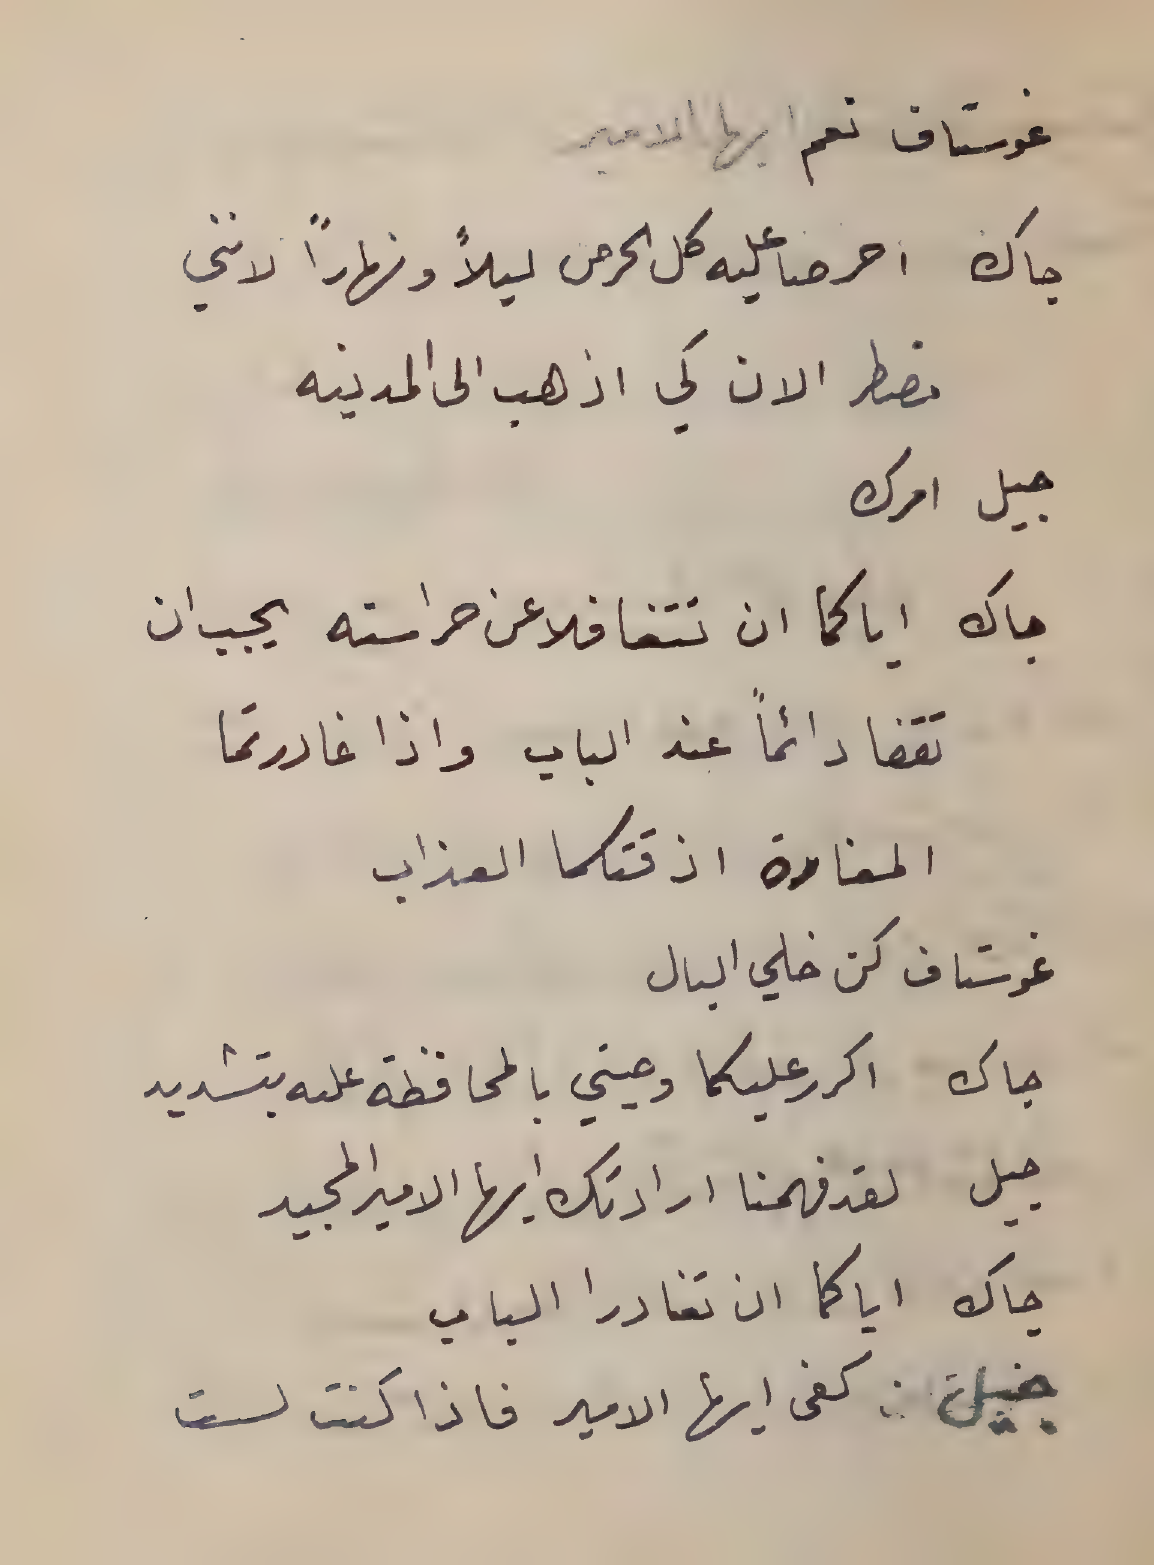 غوستاف نعم ايها الامير
جاك احرصا عليه كل الحرص ليلاً ونهاراً لانني
مضطر الان كي اذهب الى المدينه
جيل امرك
جاك اياكما ان تتغافلا عن حراسته يجب ان
تقفا دائماً عند الباب واذا غادرتما
المغارة اذقتكما العذاب
غوستاف كن خلي البال
جاك اكرر عليكما وصيتي بالمحافظة عليه بتشديد
جيل لقد فهمنا ارادتك ايها الامير المجيد
جاك اياكما ان تغادرا الباب
جيل كفى ايها الامير فاذا كنت لست